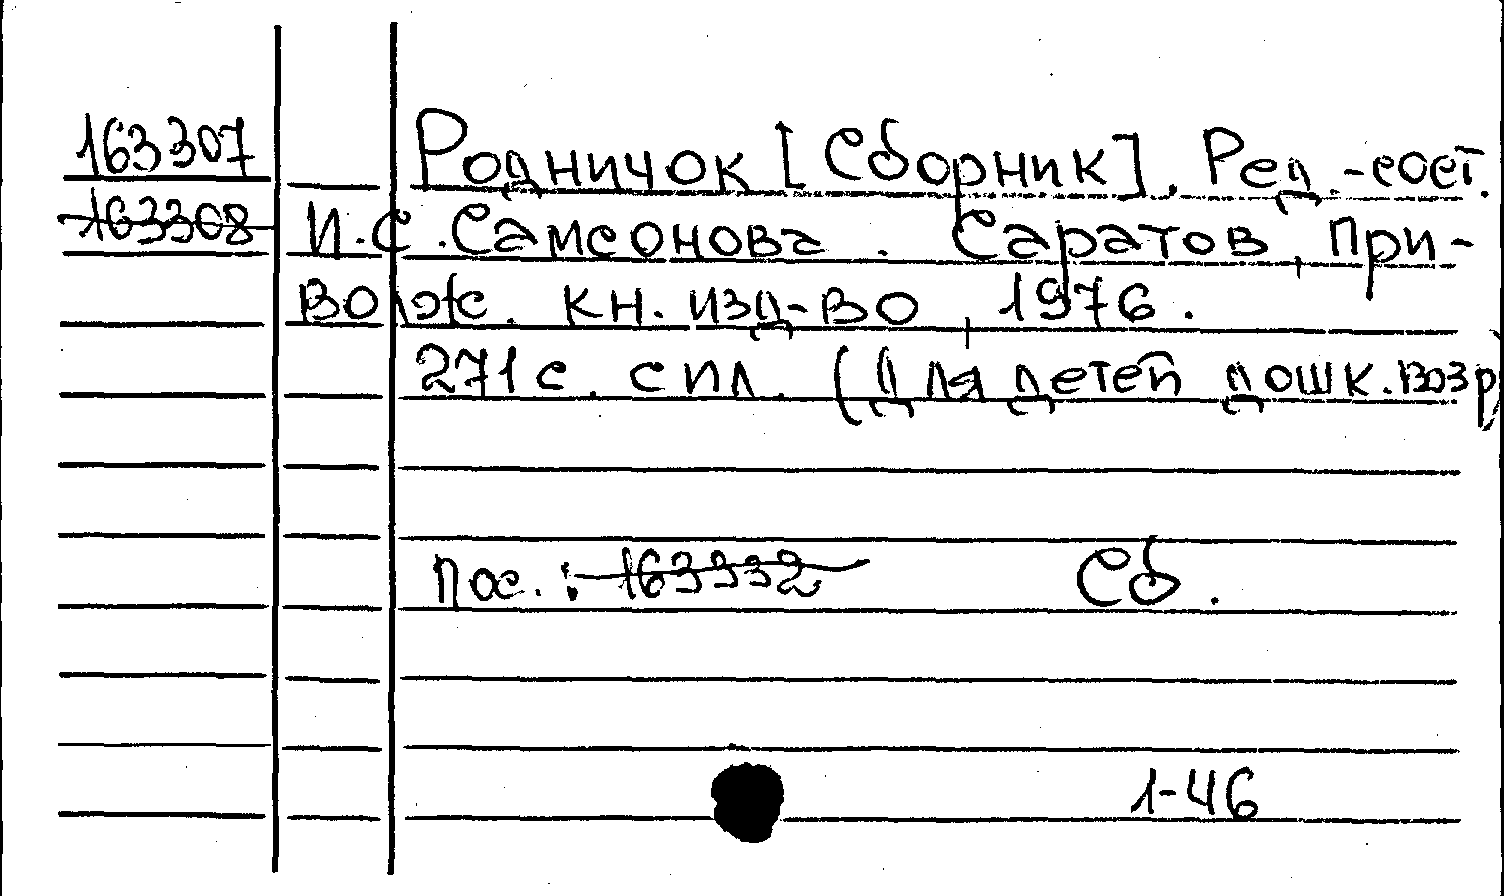 163307 Родничок [Сборник]. Ред.-сост.
163308 И.С. Самсонова. Саратов, При-
волж. кн. изд-во, 1976.
271 с. с ил. (Для детей дошк. возр)
Пос.: 163332 Сб.
1-46